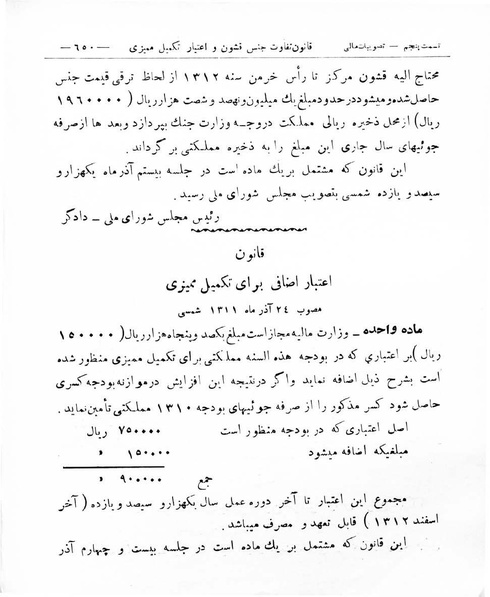 قسمت پنجم — تصویبات مالی قانون تفاوت جنس قشون و اعتبار تکمیل ممیزی —۶۵۰—
محتاج الیه قشون مرکز تا رأس خرمن سنه ۱۳۱۲ از لحاظ ترقی قیمت جنس
حاصل شده و میشود در حدود مبلغ یك میلیون و نهصد و شصت هزار ریال (۱۹۶۰۰۰۰
ریال) از محل ذخیره ریالی مملکت در وجه وزارت جنك بپردازد و بعد ها از صرفه
جوئیهای سال جاری این مبلغ را به ذخیره مملکتی بر گرداند.
این قانون که مشتمل بر یك ماده است در جلسه بیستم آذر ماه یکهزار و
سیصد و یازده شمسی بتصویب مجلس شورای ملی رسید.
رئیس مجلس شورای ملی — دادگر
قانون
اعتبار اضافی برای تکمیل ممیزی
مصوب ۲۴ آذر ماه ۱۳۱۱ شمسی
ماده واحده — وزارت مالیه مجاز است مبلغ یکصد و پنجاه هزار ریال (۱۵۰۰۰۰
ریال) بر اعتباری که در بودجه هذه السنه مملکتی برای تکمیل ممیزی منظور شده
است بشرح ذیل اضافه نماید و اگر در نتیجه این افزایش در موازنه بودجه کسری
حاصل شود کسر مذکور را از صرفه جوئیهای بودجه ۱۳۱۰ مملکتی تأمین نماید.
اصل اعتباری که در بودجه منظور است ۷۵۰۰۰۰ ریال
مبلغیکه اضافه میشود ۱۵۰۰۰۰ »
جمع ۹۰۰۰۰۰ »
مجموع این اعتبار تا آخر دوره عمل سال یکهزار و سیصد و یازده (آخر
اسفند ۱۳۱۲) قابل تعهد و مصرف میباشد.
این قانون که مشتمل بر یك ماده است در جلسه بیست و چهارم آذر